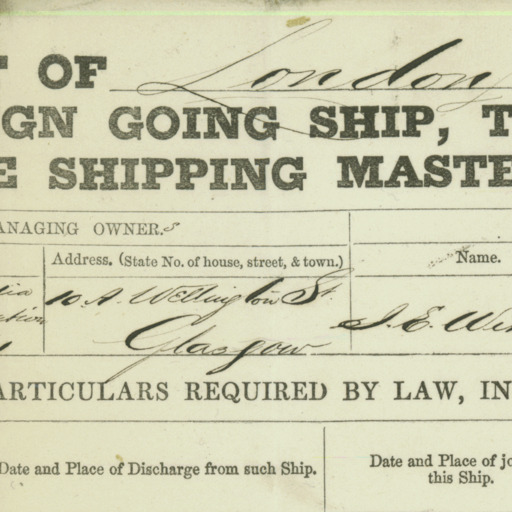 T OF London
IGN GOING SHIP, T
E SHIPPING MASTE
ANAGING OWNER.s
Address. (State No. of house, street, & town.) Name.
10.A. Wellington St.
Glasgow
J. E. We
ARTICULARS REQUIRED BY LAW, IN
Date and Place of Discharge from such Ship.
Date and Place of jo
this Ship.